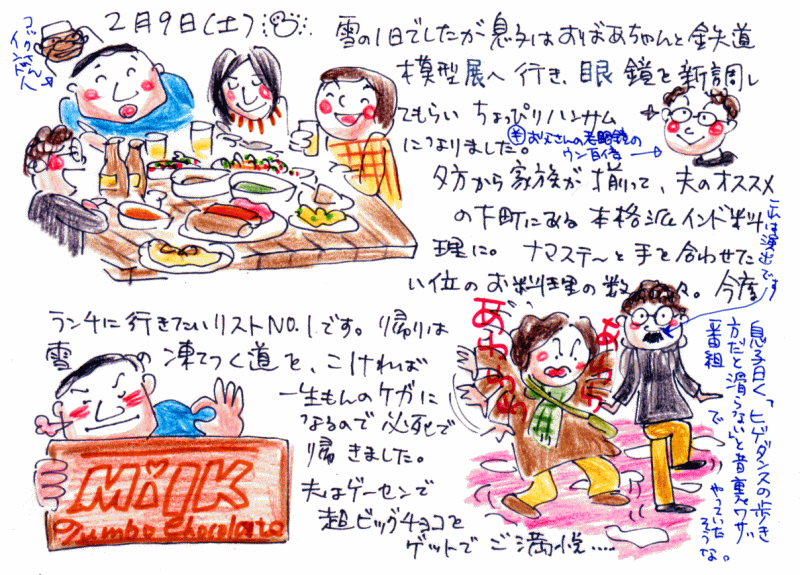 2月9日(土)
コックさん
インド人
雪の1日でしたが息子はおばあちゃんと鉄道
模型展へ行き、眼鏡を新調し
てもらい ちょっぴりハンサム
になりました。
*お父さんの老眼鏡の
ウン百倍
夕方から家族が揃って、夫のオススメ
の下町にある本格派インド料
理に。ナマステ〜と手を合わせた
い位のお料理の数々。今度
ランチに行きたいリストNO.1です。帰りは
雪の凍てつく道を、こければ
一生もんのケガに
なるので必死で
帰きました。
夫はゲーセンで
超ビッグチョコを
ゲットでご満悦....
MilK
Jumbo Chocolate
あ
これは演出です
息子曰く、「ヒゲダンスの歩き
方だと滑らない」と昔裏ワザ
番組で
やっていた
そうな。